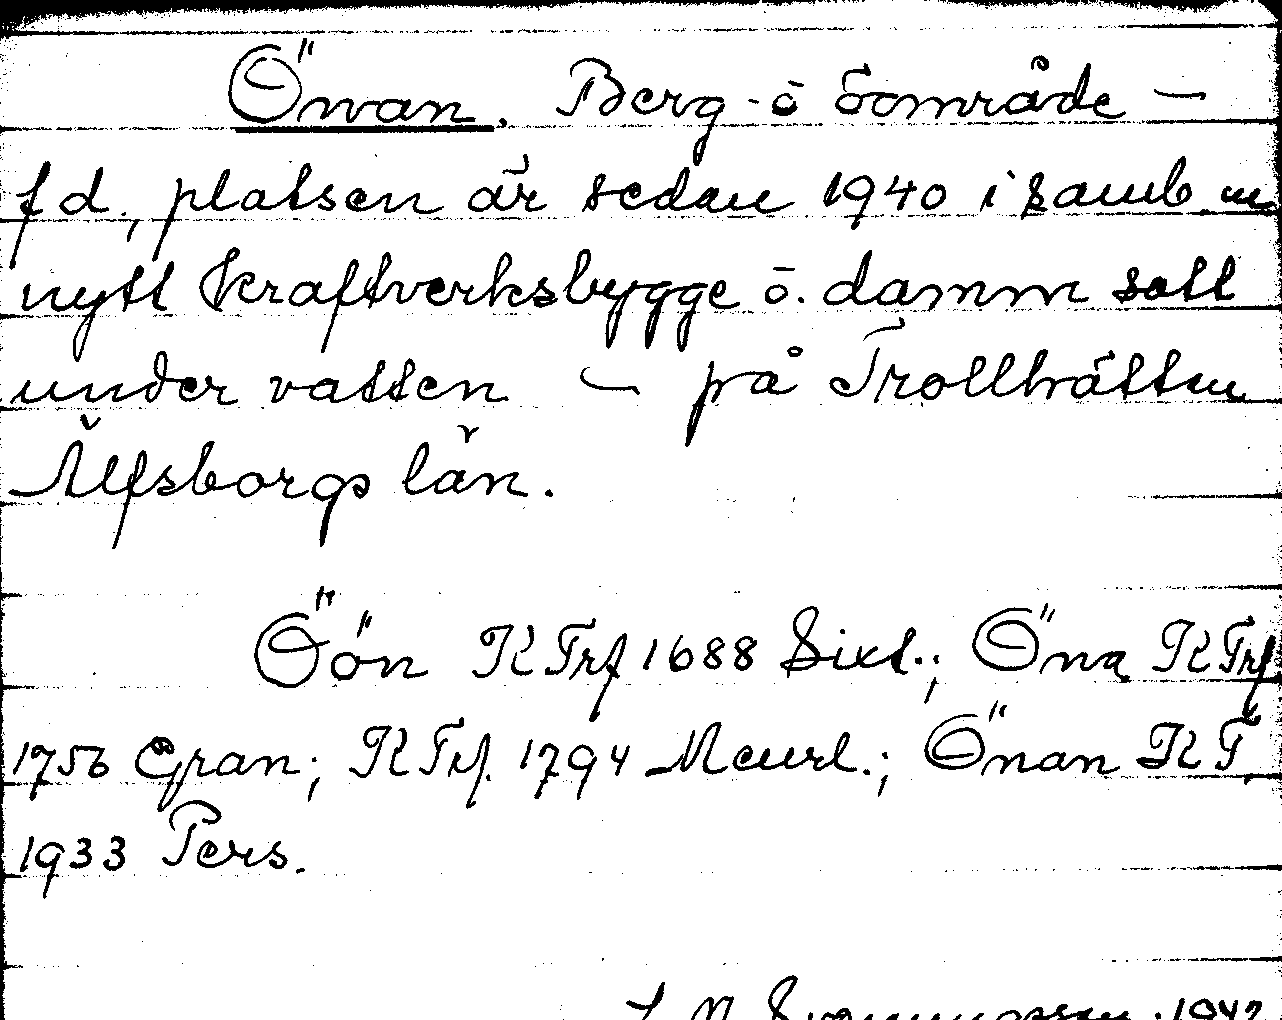 Önan. Berg- o öområde —
f d, platsen är sedan 1940 i samb m
nytt kraftverksbygge o. damm satt
under vatten — på Trollhätten
Älfsborgs län.
Öön KTrf 1688 Sixt.; Öna KTrf
1756 Gran; KTrf. 1794 Meurl.; Önan KT.
1933 Pers.
1942